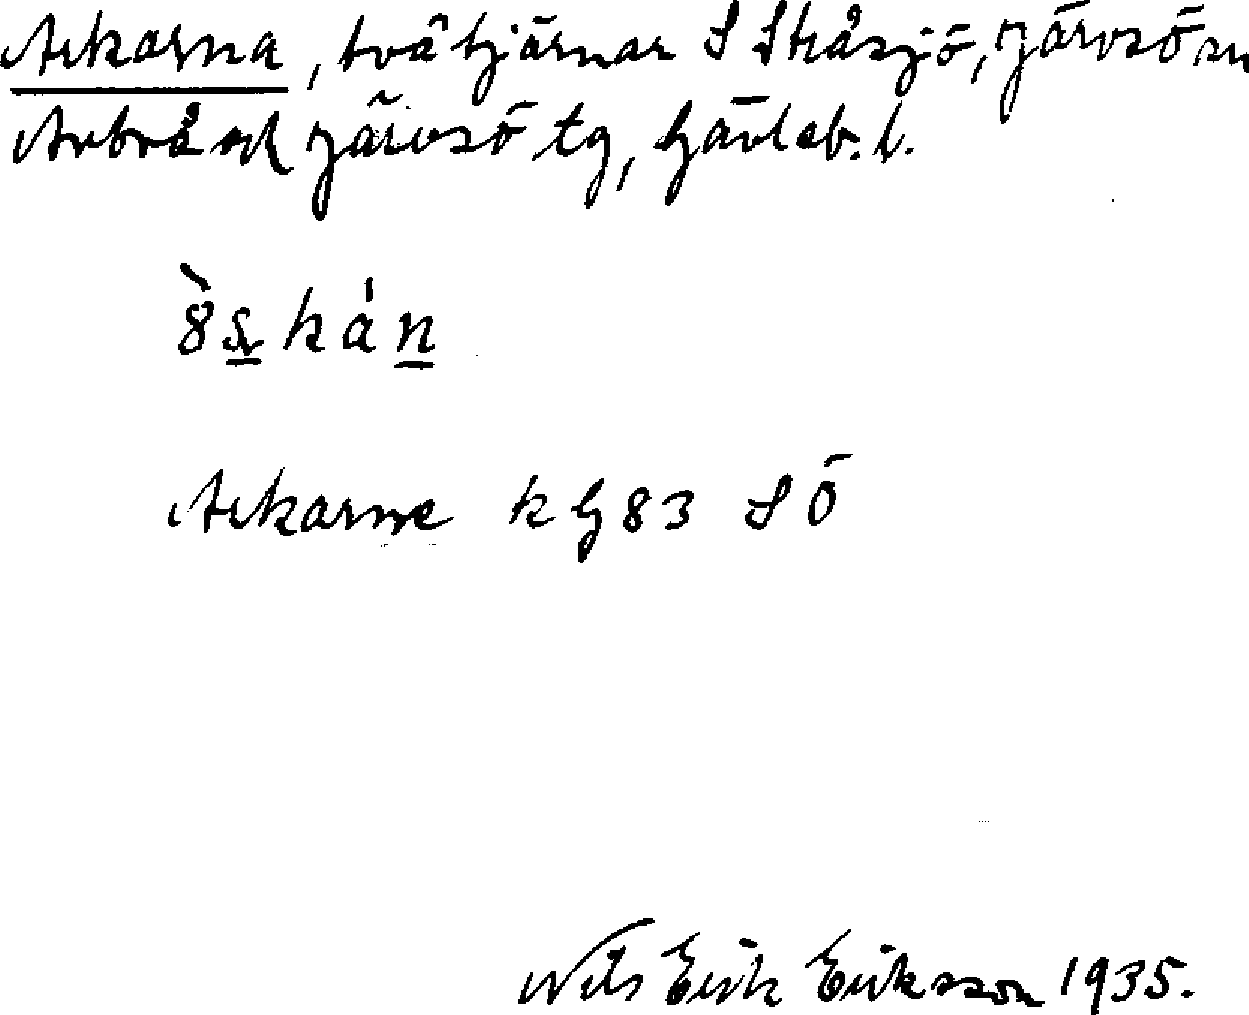 Arkarna, två tjärnar S Skåsjö, Järvsö sn
Arbrå och Järvsö tg, Gävleb. l.
kán
Arkarne kG83 SÖ
Nils Erik Eriksson 1935.